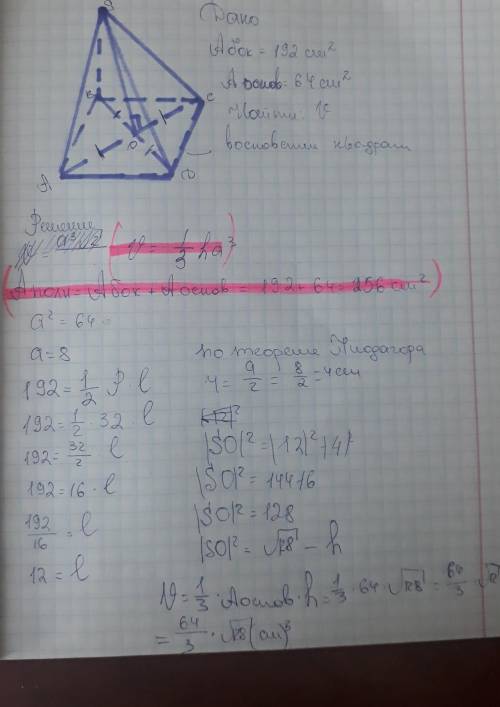 S
Дано
Aбок = 192 cm²
Aоснов = 64 cm²
Найти: V
B
C
O
восновании квадрат
A
D
Решение
V = 1/3 ha²
Aполн = Aбок + Aоснов = 192 + 64 = 256 cm²
a² = 64
a = 8
192 = 1/2 P l
192 = 1/2 · 32 · l
192 = 32/2 l
192 = 16 · l
192/16 = l
12 = l
по теореме Пифагора
r = a/2 = 8/2 = 4 см
|SO|² = |12|² - |4|²
|SO|² = 144-16
|SO|² = 128
|SO|² = √128 - h
V = 1/3 · Aоснов · h = 1/3 · 64 · √128 = 64/3 ·
= 64/3 · √128 (см)³